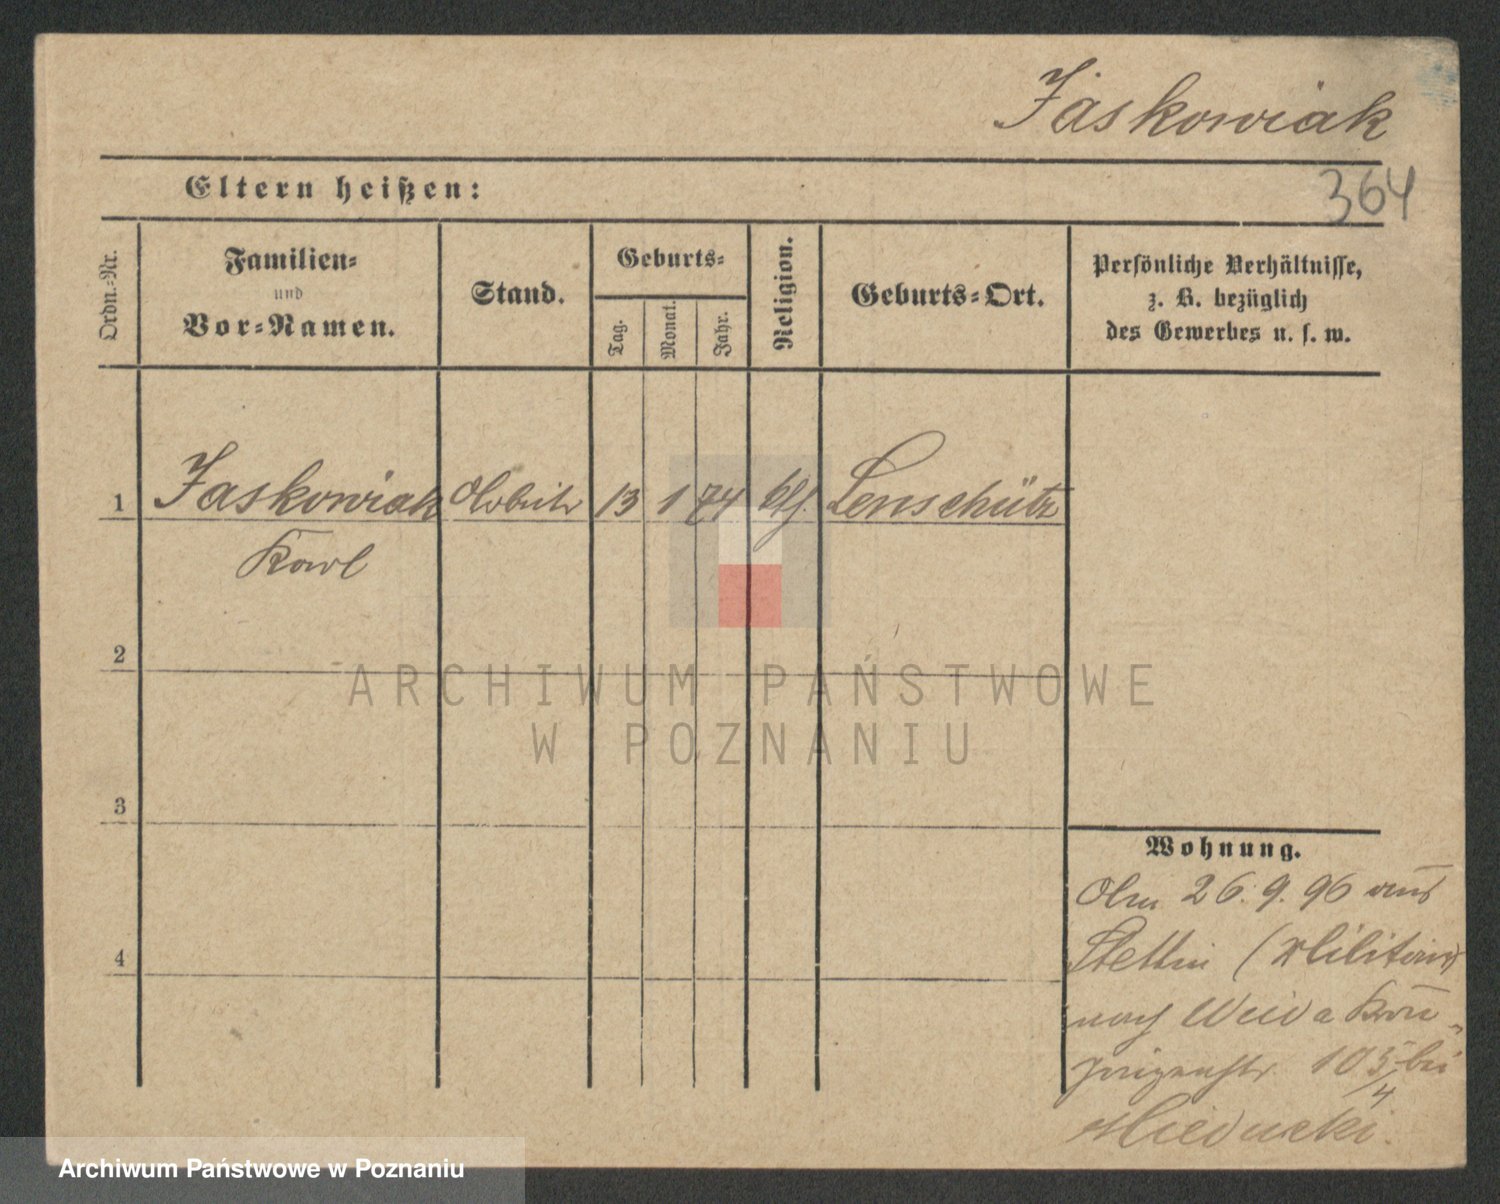 Jaskowiak
364
Eltern heißen:
Ordn.-Nr.
Familien-
und
Vor-Namen.
Stand.
Geburts-
Tag.
Monat.
Jahr.
Religion.
Geburts-Ort.
Persönliche Verhältnisse,
z. B. bezüglich
des Gewerbes u. s. w.
1 Jaskowiak Arbeiter 13 1 74 kth. Lenschütz
Karl
2
3
4
Wohnung.
Am 26. 9. 96 aus
Stettin (Militair)
nach Weida Kron-
prinzenstr. 103 bei
ARCHIWUM PAŃSTWOWE
W POZNANIU
Archiwum Państwowe w Poznaniu